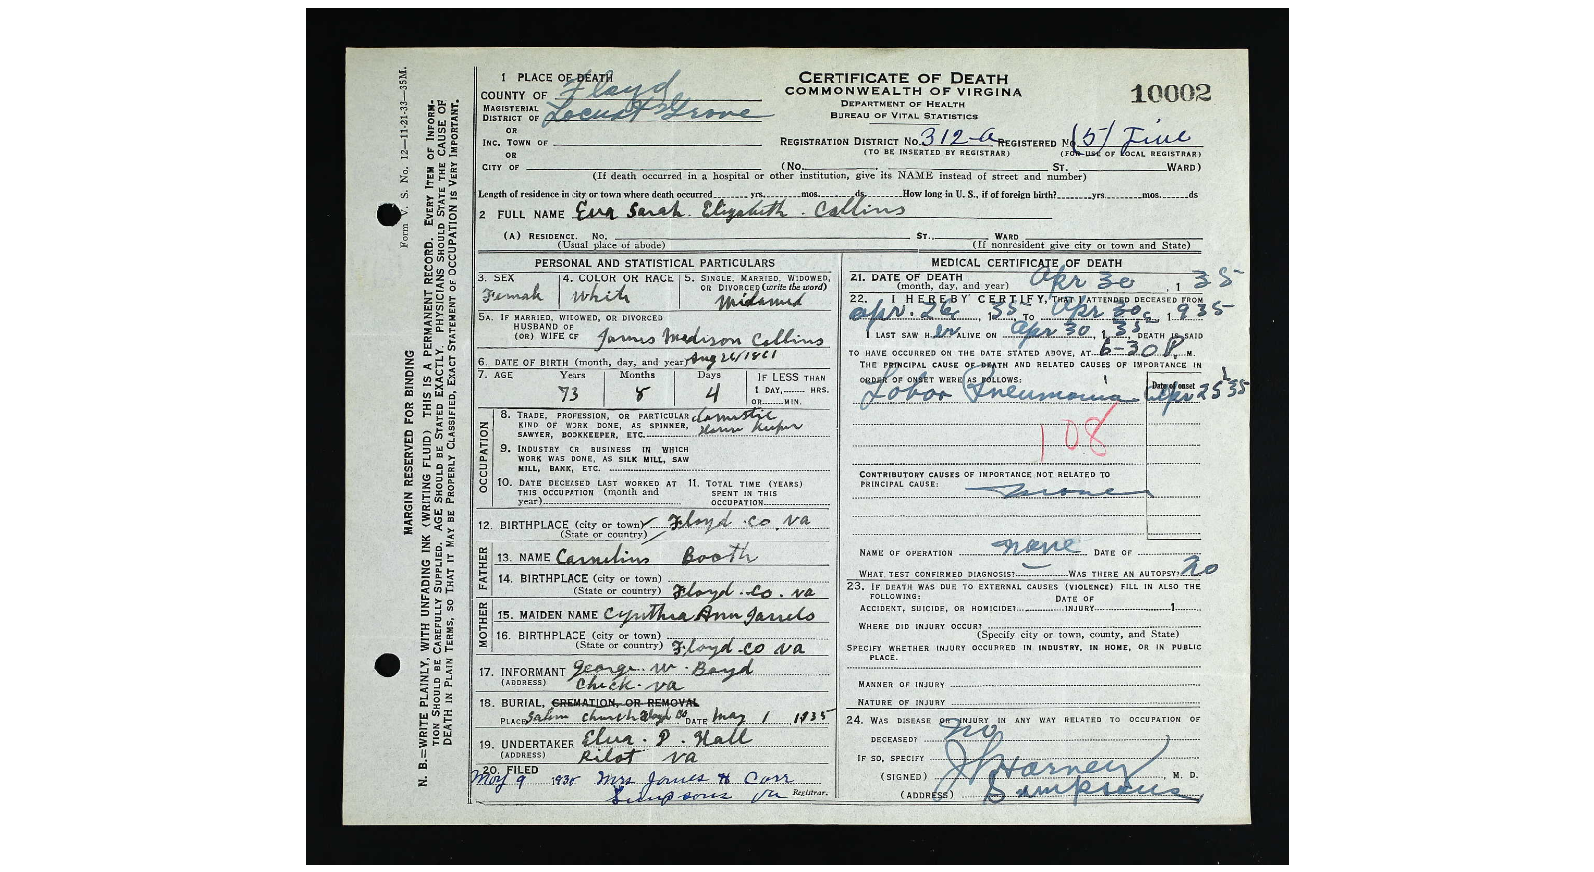 Form V. S. No. 12—11-21-33—35M.
MARGIN RESERVED FOR BINDING
N. B.—WRITE PLAINLY, WITH UNFADING INK (WRITING FLUID) THIS IS A PERMANENT RECORD. EVERY ITEM OF INFORM-
TION SHOULD BE CAREFULLY SUPPLIED. AGE SHOULD BE STATED EXACTLY. PHYSICIANS SHOULD STATE THE CAUSE OF
DEATH IN PLAIN TERMS, SO THAT IT MAY BE PROPERLY CLASSIFIED. EXACT STATEMENT OF OCCUPATION IS VERY IMPORTANT.
1 PLACE OF DEATH
COUNTY OF Floyd
MAGISTERIAL
DISTRICT OF Locust Grove
OR
INC. TOWN OF
OR
CITY OF
CERTIFICATE OF DEATH
COMMONWEALTH OF VIRGINA
DEPARTMENT OF HEALTH
BUREAU OF VITAL STATISTICS
10002
REGISTRATION DISTRICT No. 312-a REGISTERED No. (5) Five
(TO BE INSERTED BY REGISTRAR) (FOR USE OF LOCAL REGISTRAR)
(No. ST. WARD)
(If death occurred in a hospital or other institution, give its NAME instead of street and number)
Length of residence in city or town where death occurred yrs. mos. ds. How long in U. S., if of foreign birth? yrs mos. ds
2 FULL NAME Eva Sarah Elizabeth Collins
(A) RESIDENCE. No. ST. WARD
(Usual place of abode) (If nonresident give city or town and State)
PERSONAL AND STATISTICAL PARTICULARS
3. SEX 4. COLOR OR RACE 5. SINGLE, MARRIED, WIDOWED,
OR DIVORCED (write the word)
Female White Widowed
5A. IF MARRIED, WIDOWED, OR DIVORCED
HUSBAND OF
(OR) WIFE OF James Madison Collins
6. DATE OF BIRTH (month, day, and year) Aug 26/1861
7. AGE Years Months Days IF LESS THAN
1 DAY, HRS.
OR MIN.
73 8 4
OCCUPATION
8. TRADE, PROFESSION, OR PARTICULAR domestic
KIND OF WORK DONE, AS SPINNER, House Keeper
SAWYER, BOOKKEEPER, ETC.
9. INDUSTRY OR BUSINESS IN WHICH
WORK WAS DONE, AS SILK MILL, SAW
MILL, BANK, ETC.
10. DATE DECEASED LAST WORKED AT
THIS OCCUPATION (month and
year)
11. TOTAL TIME (YEARS)
SPENT IN THIS
OCCUPATION
12. BIRTHPLACE (city or town) Floyd Co Va
(State or country)
FATHER
13. NAME Carnelius Booth
14. BIRTHPLACE (city or town)
(State or country) Floyd Co. Va
MOTHER
15. MAIDEN NAME Cynthia Ann
16. BIRTHPLACE (city or town)
(State or country) Floyd Co Va
17. INFORMANT George W. Boyd
(ADDRESS) Check Va
18. BURIAL, CREMATION, OR REMOVAL
PLACE Salem Church Floyd Co DATE May 1, 1935
19. UNDERTAKER P. Hall
(ADDRESS) Pilot Va
20. FILED
May 9 1935 Mrs James H Corr
Simpsons Va Registrar.
MEDICAL CERTIFICATE OF DEATH
21. DATE OF DEATH
(month, day, and year) Apr 30, 1 35
22. I HEREBY CERTIFY, THAT I ATTENDED DECEASED FROM
Apr. 26, 1 35 TO Apr 30, 1 935
I LAST SAW H er ALIVE ON Apr 30, 1 35, DEATH IS SAID
TO HAVE OCCURRED ON THE DATE STATED ABOVE, AT 6-30 P. M.
THE PRINCIPAL CAUSE OF DEATH AND RELATED CAUSES OF IMPORTANCE IN
ORDER OF ONSET WERE AS FOLLOWS: Date of onset
Lobar Pneumonia Apr 25 35
108
CONTRIBUTORY CAUSES OF IMPORTANCE NOT RELATED TO
PRINCIPAL CAUSE:
none
NAME OF OPERATION none DATE OF
WHAT TEST CONFIRMED DIAGNOSIS? WAS THERE AN AUTOPSY? no
23. IF DEATH WAS DUE TO EXTERNAL CAUSES (VIOLENCE) FILL IN ALSO THE
FOLLOWING: DATE OF
ACCIDENT, SUICIDE, OR HOMICIDE? INJURY 1
WHERE DID INJURY OCCUR?
(Specify city or town, county, and State)
SPECIFY WHETHER INJURY OCCURRED IN INDUSTRY, IN HOME, OR IN PUBLIC
PLACE.
MANNER OF INJURY
NATURE OF INJURY
24. WAS DISEASE OR INJURY IN ANY WAY RELATED TO OCCUPATION OF
DECEASED? no
IF SO, SPECIFY
(SIGNED) Harney, M. D.
(ADDRESS) Simpsons